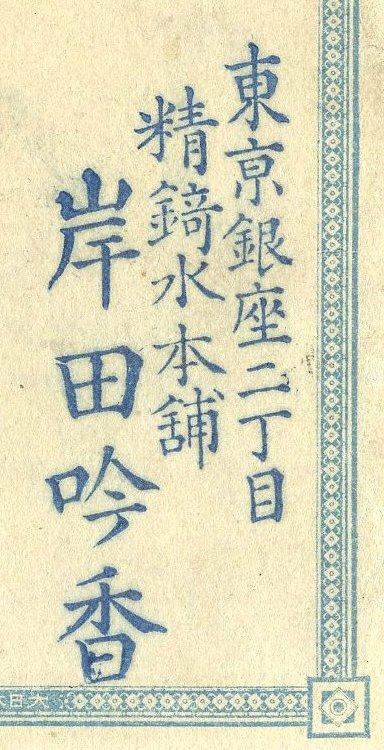 東京銀座二丁目
精錡水本舖
岸田吟香